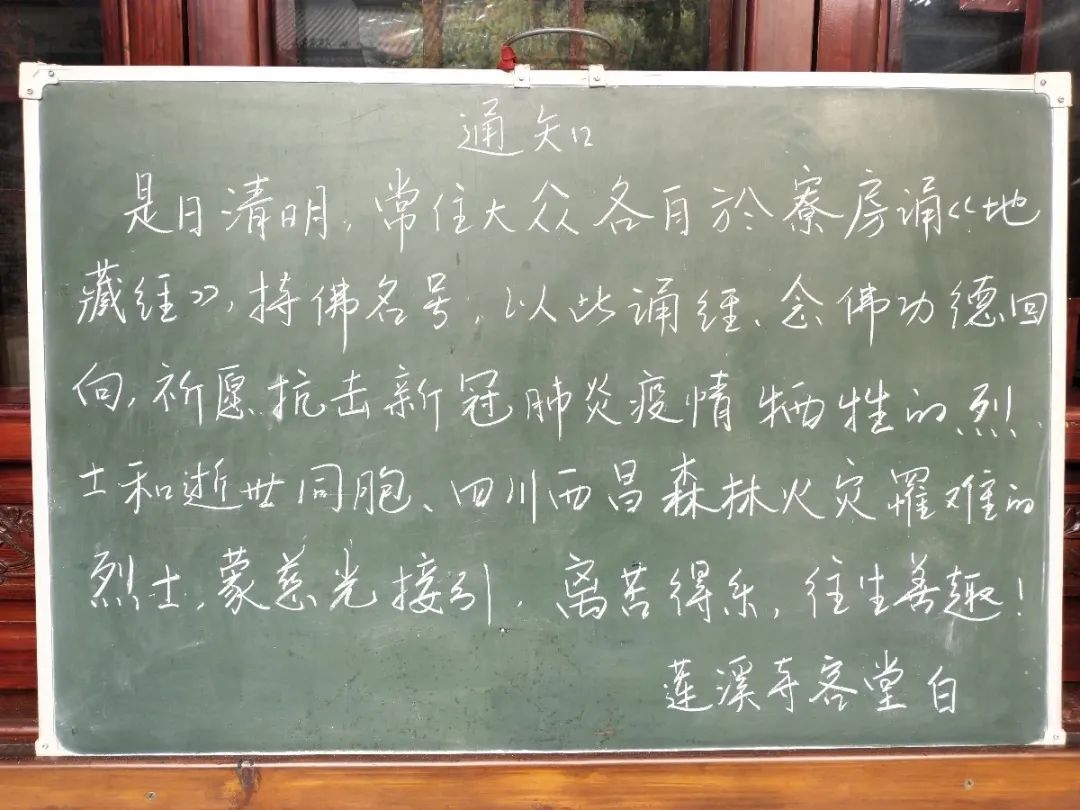 通知
是日清明，常住大众各自於寮房诵《地
藏经》，持佛名号，以此诵经、念佛功德回
向，祈愿抗击新冠肺炎疫情牺牲的烈
士和逝世同胞、四川西昌森林火灾罹难的
烈士，蒙慈光接引，离苦得乐，往生善趣！
莲溪寺客堂白